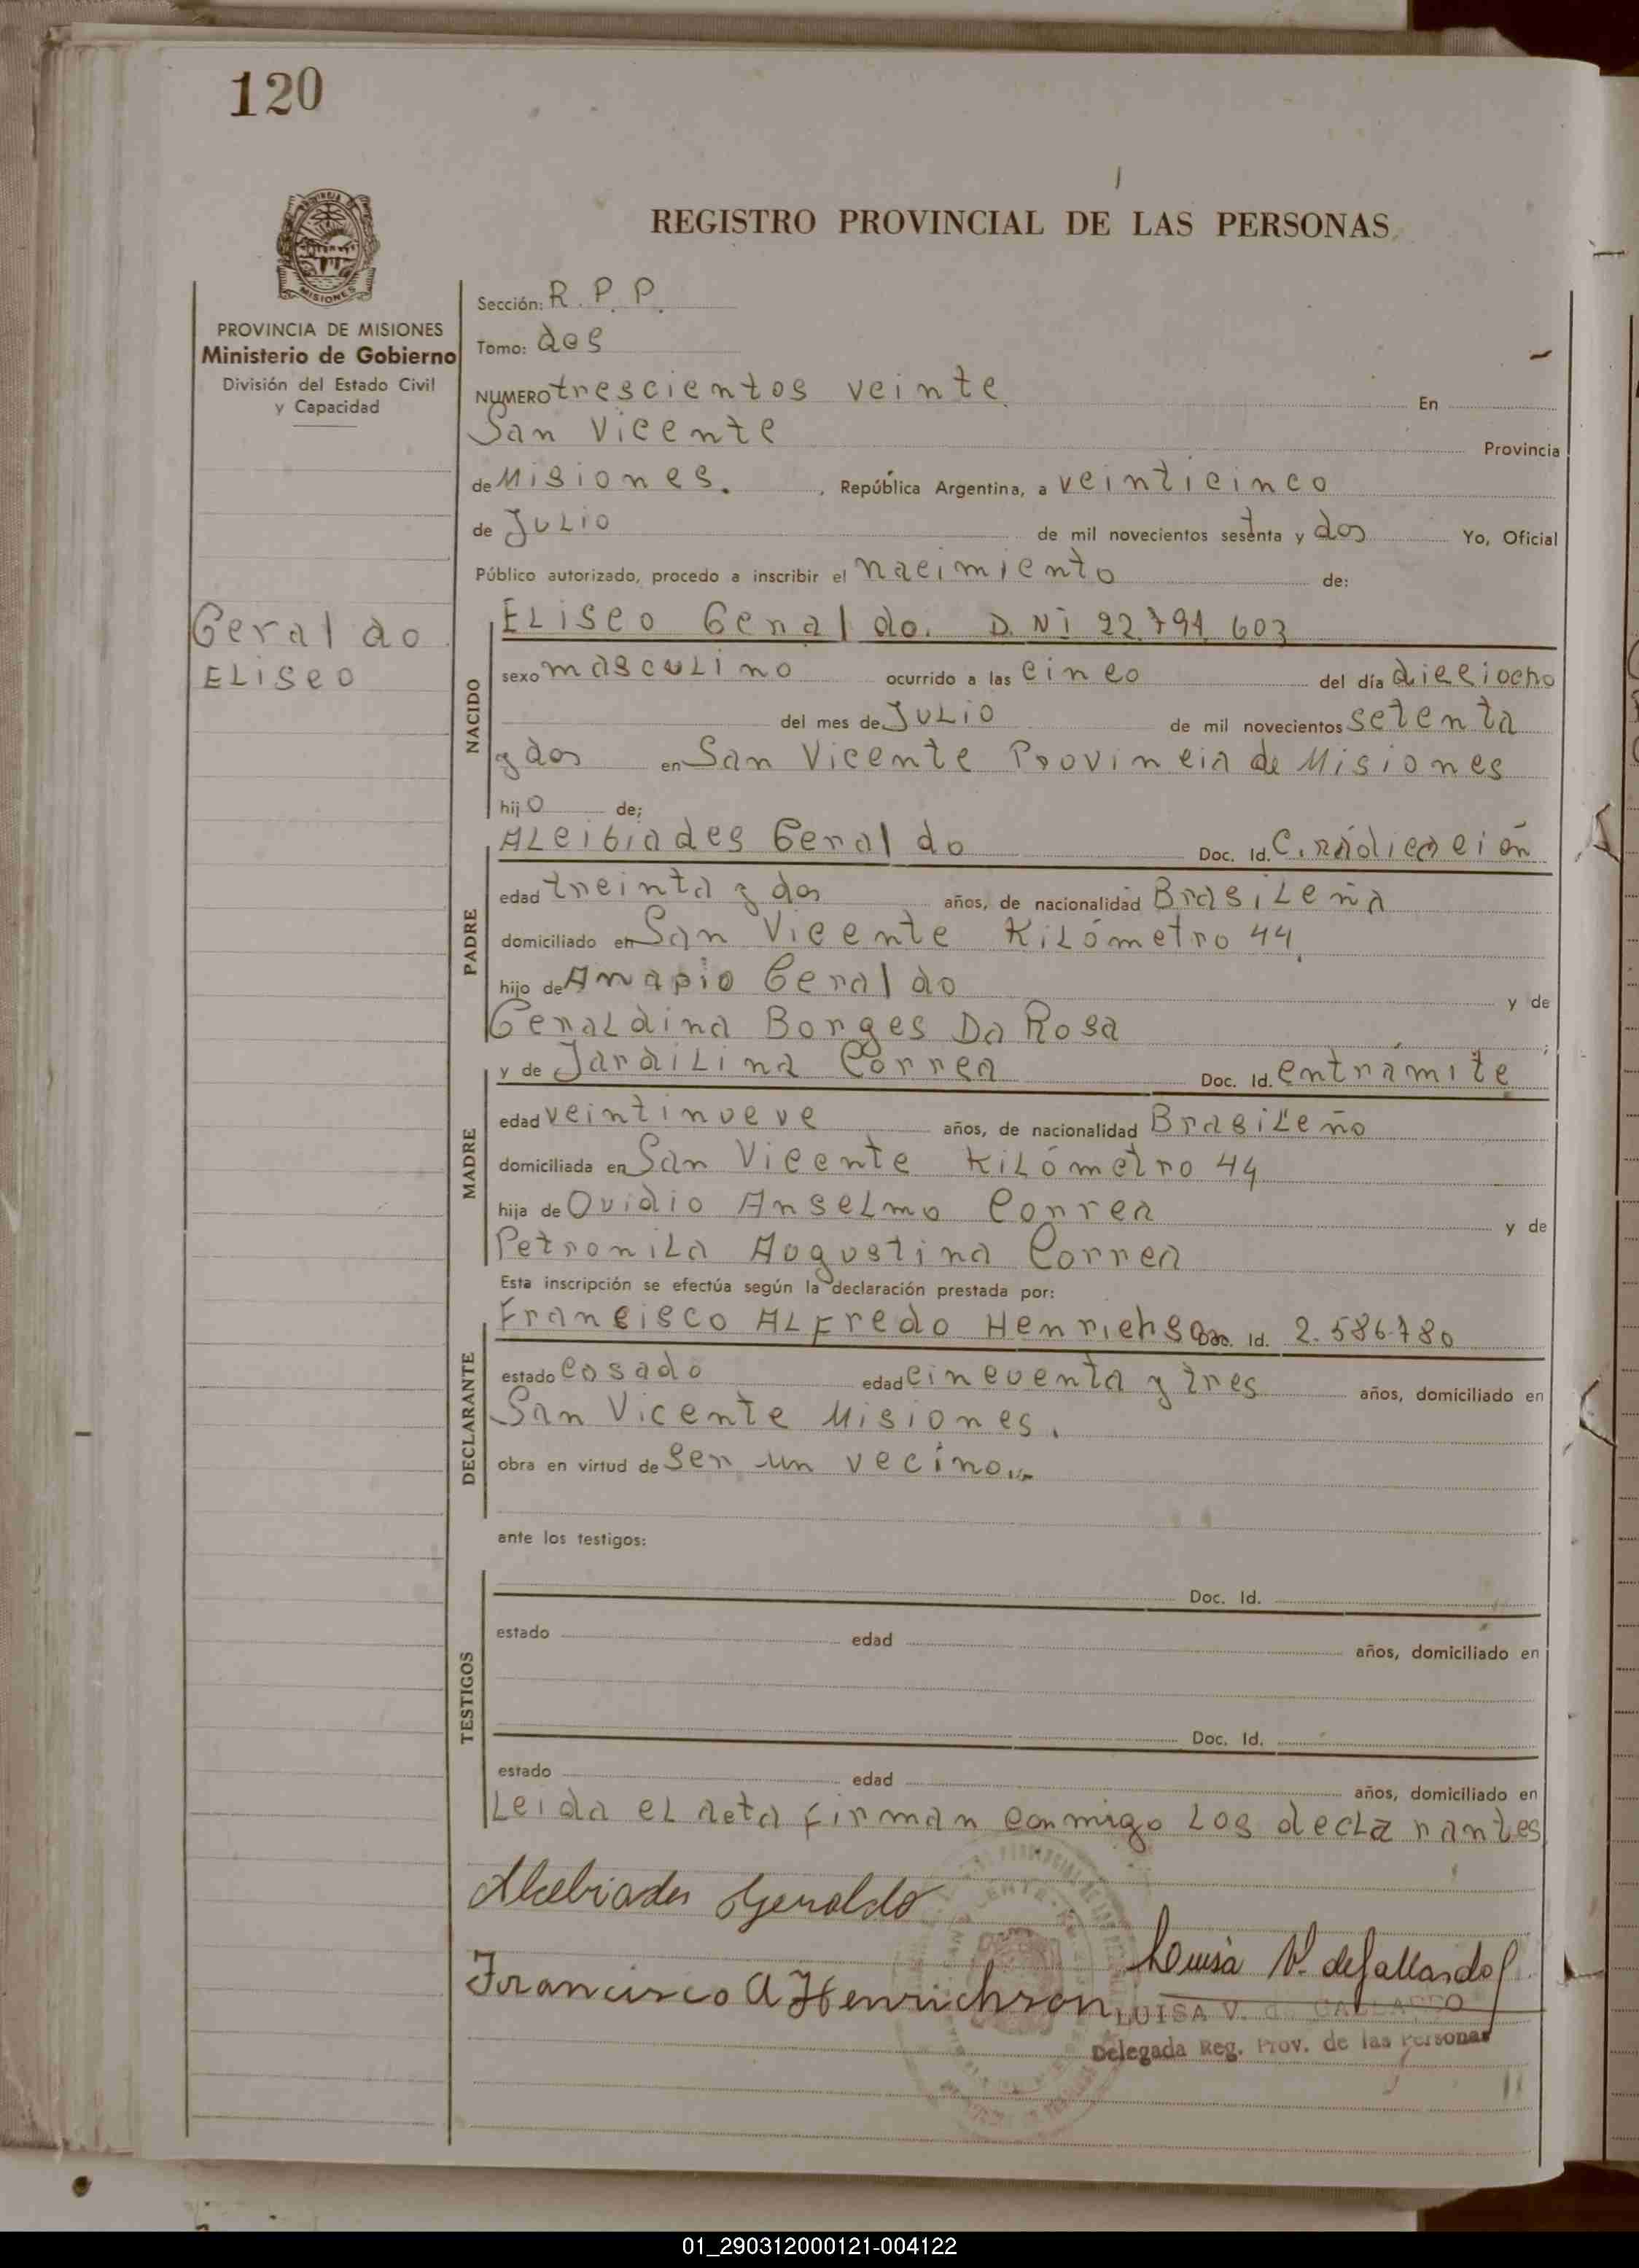 120
REGISTRO PROVINCIAL DE LAS PERSONAS
PROVINCIA DE MISIONES
Ministerio de Gobierno
División del Estado Civil
y Capacidad
Geraldo
Eliseo
Sección: R. P. P.
Tomo: dos
NUMERO trescientos veinte En
San Vicente Provincia
de Misiones. , República Argentina, a veinticinco
de Julio de mil novecientos setenta y dos Yo, Oficial
Público autorizado, procedo a inscribir el nacimiento de:
NACIDO
Eliseo Geraldo. D. Ni 22.791.603
sexo masculino ocurrido a las cinco del día dieciocho
del mes de Julio de mil novecientos setenta
y dos en San Vicente Provincia de Misiones
hijo de;
PADRE
Alcibiades Geraldo Doc. Id. C. radicación
edad treinta y dos años, de nacionalidad Brasileña
domiciliado en San Vicente Kilómetro 44.
hijo de Geraldo y de
Geraldina Borges Da Rosa
MADRE
y de Jardilina Correa Doc. Id. entrámite
edad veintinueve años, de nacionalidad Brasileño
domiciliada en San Vicente Kilómetro 44
hija de Ovidio Anselmo Correa y de
Petronila Augustina Correa
Esta inscripción se efectúa según la declaración prestada por:
DECLARANTE
Francisco Alfredo Henrichson Doc. Id. 2.586.780
estado casado edad cincuenta y tres años, domiciliado en
San Vicente Misiones.
obra en virtud de ser un vecino..-
ante los testigos:
TESTIGOS
Doc. Id.
estado edad años, domiciliado en
Doc. Id.
estado edad años, domiciliado en
Leida el acta firman conmigo los declarantes
Alcebiades Geraldo
Luisa V. de Gallardo
Francisco A Henrichson
LUISA V. de GALLARDO
Delegada Reg. Prov. de las Personas
01_290312000121-004122